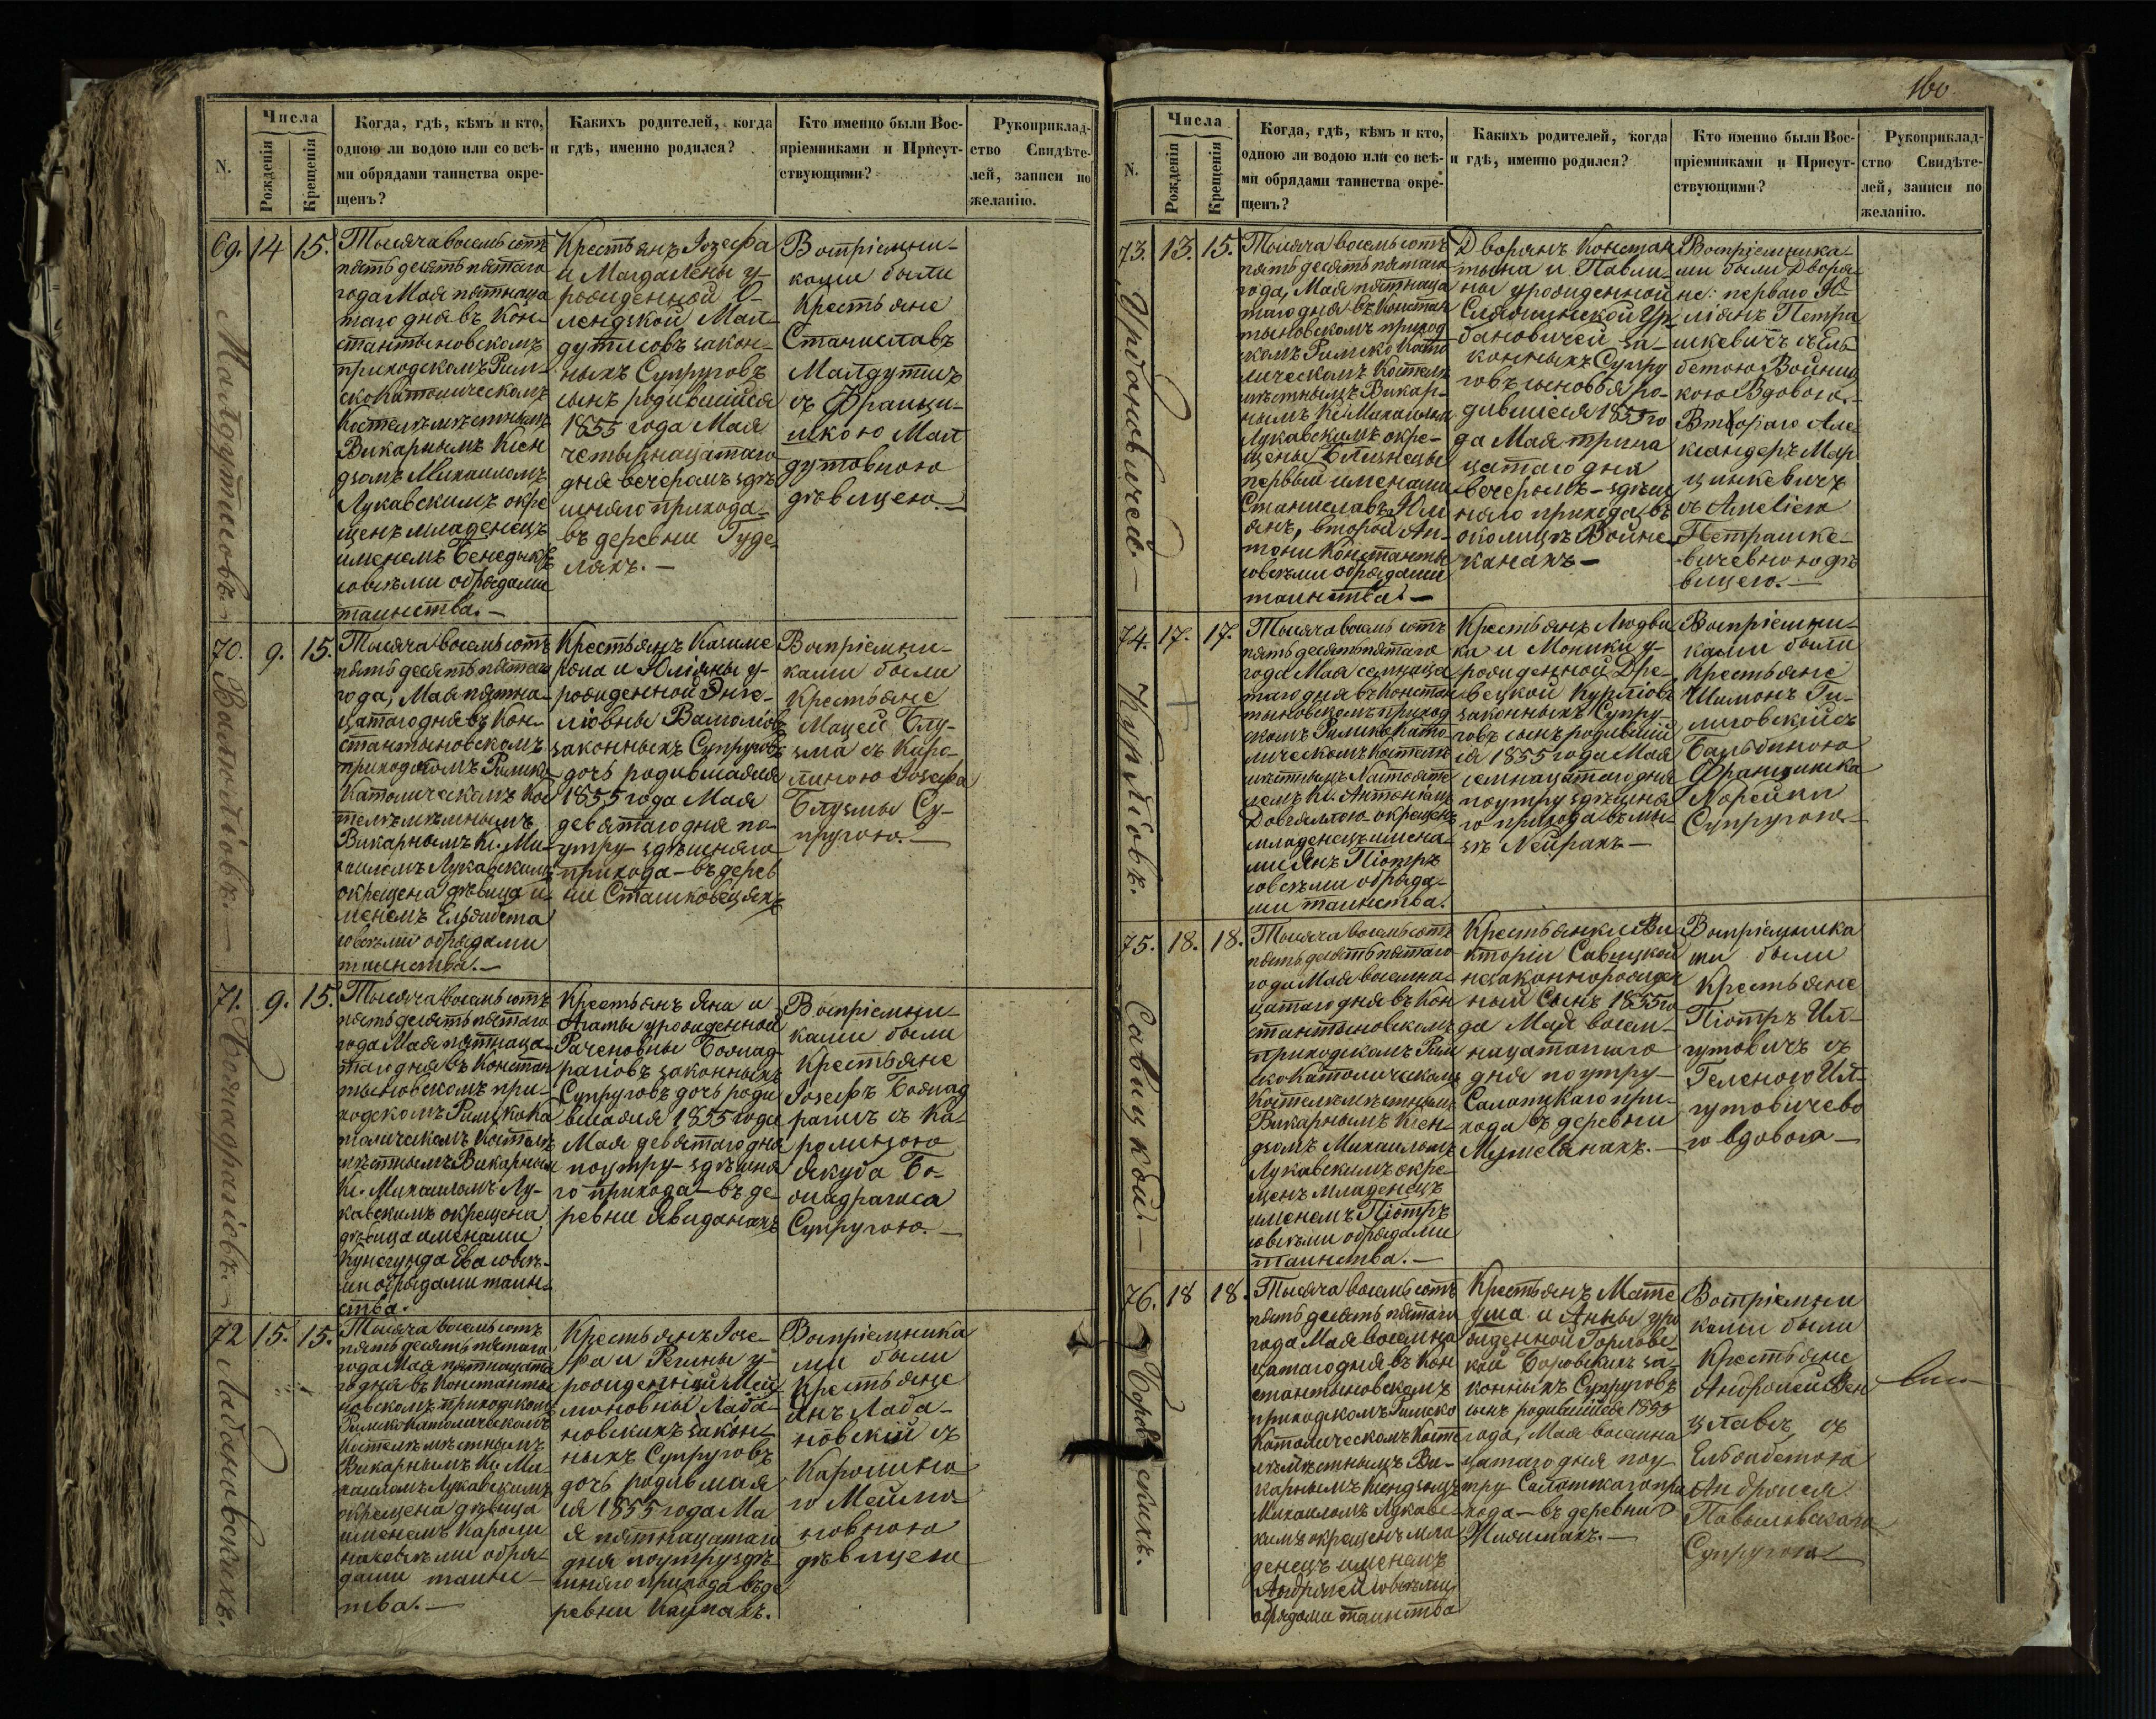 Числа
N.
Рожденія
Крещенія
Когда, гдѣ, кѣмъ и кто,
одною ли водою или со всѣ-
ми обрядами таинства окре-
щенъ?
Какихъ родителей, когда
и гдѣ, именно родился?
Кто именно были Вос-
пріемниками и Присут-
ствующими?
Рукоприклад-
ство Свидѣте-
лей, записи по
желанію.
69. 14 15.
Малдутисовъ.
Тысяча восемь сотъ
пять десять пятаго
года Мая пятнаца
таго дня въ Кон-
стантыновскомъ
приходскомъ Рим-
ско Католическомъ
Костелѣ мѣстнымъ
Викарнымъ Ксен
дзомъ Михаиломъ
Лукавскимъ окре
щенъ младенецъ
именемъ Бенедыктъ
со всѣми обрядами
таинства.-
Крестьянъ Іозефа
и Магдалены у-
рожденной
Мал-
дутисовъ закон-
ныхъ Супруговъ
сынъ родившійся
1855 года Мая
четырнацатаго
дня вечеромъ здѣ
шняго прихода-
въ деревни Гуде
ляхъ.-
Воспріемни-
ками были
Крестьяне
Станиславъ
Малдутисъ
съ Франци-
шкою Мал
дутовною
дѣвицею.-
70. 9. 15.
Тысяча восемь сотъ
пять десять пятаго
года, Мая пятна-
цатаго дня въ Кон-
стантыновскомъ
приходскомъ Римско
Католическомъ Кос
телѣ мѣстнымъ
Викарнымъ Кс. Ми-
хаиломъ Лукавскимъ
окрещена дѣвица и-
менемъ Ельжбета
со всѣми обрядами
таинства.-
Крестьянъ Казиме
ра и Юліяны у-
рожденной Энге-
ліовны
законныхъ Супруговъ
дочь родившаяся
1855 года Мая
девятаго дня по-
утру здѣшняго
прихода-въ дерев
ни Сташковцяхъ
Воспріемни-
ками были
Крестьяне
Мацей Блу-
зма съ Каро-
линою Іозефа
Блузмы Су-
пругою.-
71. 9. 15.
Тысяча восемь сотъ
пять десять пятаго
года Мая пятнаца-
таго дня въ Констан
тыновскомъ при-
ходскомъ Римско Ка
толическомъ Костелѣ
мѣстнымъ Викарнымъ
Кс. Михаиломъ Лу-
кавскимъ окрещена
дѣвица именами
Кунегунда Ева со всѣ-
ми обрядами таин-
ства.
Крестьянъ Яна и
Агаты урожденной
Раченовны
законныхъ
Супруговъ дочь роди
вшаяся 1855 года
Мая девятаго дня
поутру-здѣшня
го прихода-въ де-
ревни Явиданахъ
Воспріемни-
ками были
Крестьяне
Іозефъ
съ Ка-
ролиною
Якуба
Супругою.-
72 15. 15.
Лабановскихъ.
Тысяча восемь сотъ
пять десять пятаго
года Мая пятнацата
го дня въ Константы
новскомъ приходскомъ
Римско Католическомъ
Костелѣ мѣстнымъ
Викарнымъ Кс. Ми-
хаиломъ Лукавскимъ
окрещена дѣвица
именемъ Кароли
на со всѣми обря-
дами таинс-
тва.-
Крестьянъ Іозе-
фа и Регины у-
рожденной Мей-
лоновны Лаба-
новскихъ закон-
ныхъ Супруговъ
дочь родившая
ся 1855 года Ма
я пятнацатаго
дня поутру здѣ-
шняго прихода въ де
ревни Кацпахъ.
Воспріемника
ми были
Крестьяне
Янъ Лаба-
новскій съ
Каролиню
го
дѣвицею
160
Числа
N.
Рожденія
Крещенія
Когда, гдѣ, кѣмъ и кто,
одною ли водою или со всѣ-
ми обрядами таинства окре-
щенъ?
Какихъ родителей, когда
и гдѣ, именно родился?
Кто именно были Вос-
пріемниками и Присут-
ствующими?
Рукоприклад-
ство Свидѣте-
лей, записи по
желанію.
73. 13. 15.
Урбановичей.-
Тысяча восемь сотъ
пять десять пятаго
года, Мая пятнаца
таго дня въ Констан
тыновскомъ приход
скомъ Римско Като
лическомъ Костелѣ
мѣстнымъ Викар-
нымъ Кс. Михаиломъ
Лукавскимъ окре-
щены Близнецы
первый именами
Станиславъ Юли
янъ, второй Ан-
тони Константы
со всѣми обрядами
таинства.-
Дворянъ Констан
тына и Павли-
ны урожденной
Ур-
бановичей за-
конныхъ Супру
говъ сыновья ро-
дившіеся 1855 го
да Мая трина
цатаго дня
вечеромъ-здѣш
няго прихода, въ
околицѣ Войне-
канахъ-
Воспріемника-
ми были Дворя-
не: перваго Ю-
ліянъ Петра
шкевичъ съ Ель
бетою Войниц
кою Вдовою.-
Втораго Але
ксандеръ Мар
цинкевичъ
съ Амеліею
Петрашке-
вичевною дѣ
вицею.-
74. 17. 17.
Тысяча восемь сотъ
пять десять пятаго
года Мая семнаца
таго дня въ Констан
тыновскомъ приход
скомъ Римско Като-
лическомъ Костелѣ
мѣстнымъ Настояте
лемъ Кс. Антоніемъ
окрещенъ
младенецъ имена-
ми Янъ Піотръ
со всѣми обряда-
ми таинства.
Крестьянъ Людви
ка и Моники у-
рожденной Дре-
вецкой
законныхъ Супру-
говъ сынъ родивший
ся 1855 года Мая
семнацатаго дня
поутру здѣшня
го прихода въ мы-
зѣ Нейрахъ-
Воспріемни-
ками были
Крестьяне
Шимонъ Ги-
лиговскій съ
Бальбиною
Францишка
Норейки
Супругою-
75. 18. 18.
Савицкой.-
Тысяча восемь сотъ
пять десять пятаго
года Мая восемна-
цатаго дня въ Кон
стантыновскомъ
приходскомъ Рим
ско Католическомъ
Костелѣ мѣстнымъ
Викарнымъ Ксен-
дзомъ Михаиломъ
Лукавскимъ окре-
щенъ младенецъ
именемъ Піотръ
со всѣми обрядами
таинства.-
Крестьянки Ви-
кторіи Савицкой
незаконнорожден
ный Сынъ 1855 го
да Мая восем-
нацатаго
дня поутру-
Салотскаго при-
хода въ деревни
Мушеванахъ.-
Воспріемника
ми были
Крестьяне
Піотръ Ил-
гутовичъ съ
Геленою Ил-
гутовичево
го вдовою-
76. 18 18.
Боровскихъ.
Тысяча восемь сотъ
пять десять пятаго
года Мая восемна
цатаго дня въ Кон
стантыновскомъ
приходскомъ Римско
Католическомъ Косте
лѣ мѣстнымъ Ви-
карнымъ Ксендзомъ
Михаиломъ Лукавс-
кимъ окрещенъ мла
денецъ именемъ
Андржей со всѣми
обрядами таинства
Крестьянъ Мате
уша и Анны уро
жденной Горлове-
кой Боровскихъ за-
конныхъ Супруговъ
сынъ родившійся 1855
года, Мая восемна
цатаго дня поу-
тру Салотскаго при
хода-въ деревни
Жилимахъ.-
Воспріемни
ками были
Крестьяне
Андржей Вен
цлавъ съ
Ельжбетою
Андржея
Павиловскаго
Супругою